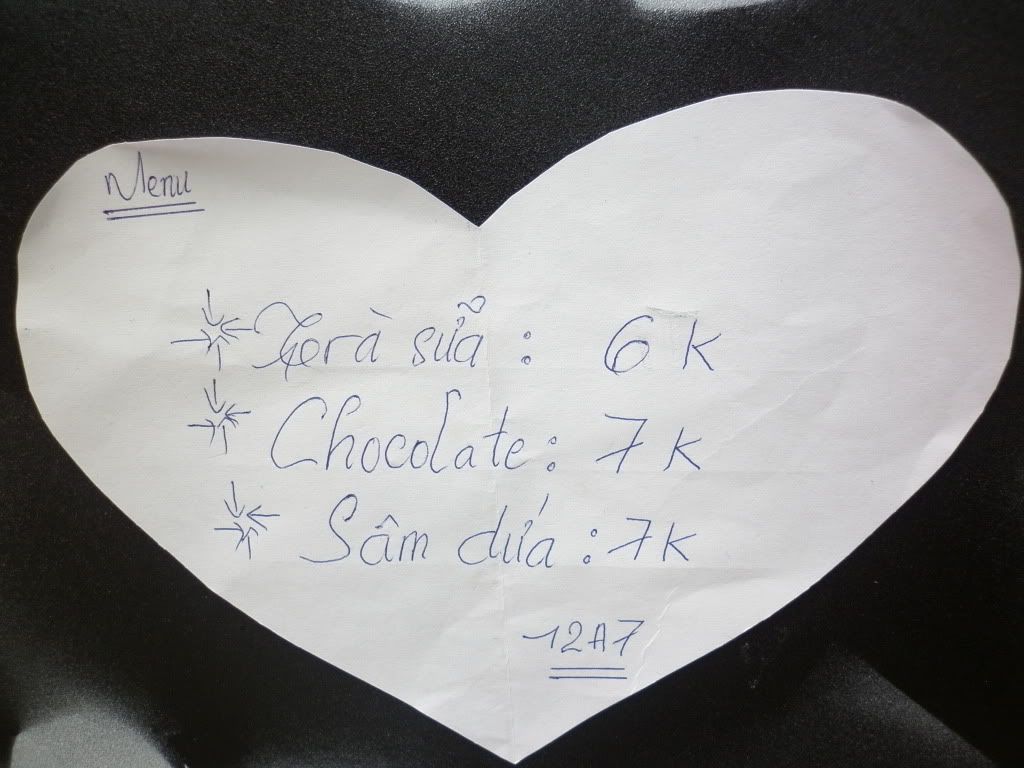 Menu
Trà sữa : 6 k
Chocolate : 7 k
Sâm dứa : 7 k
12A7